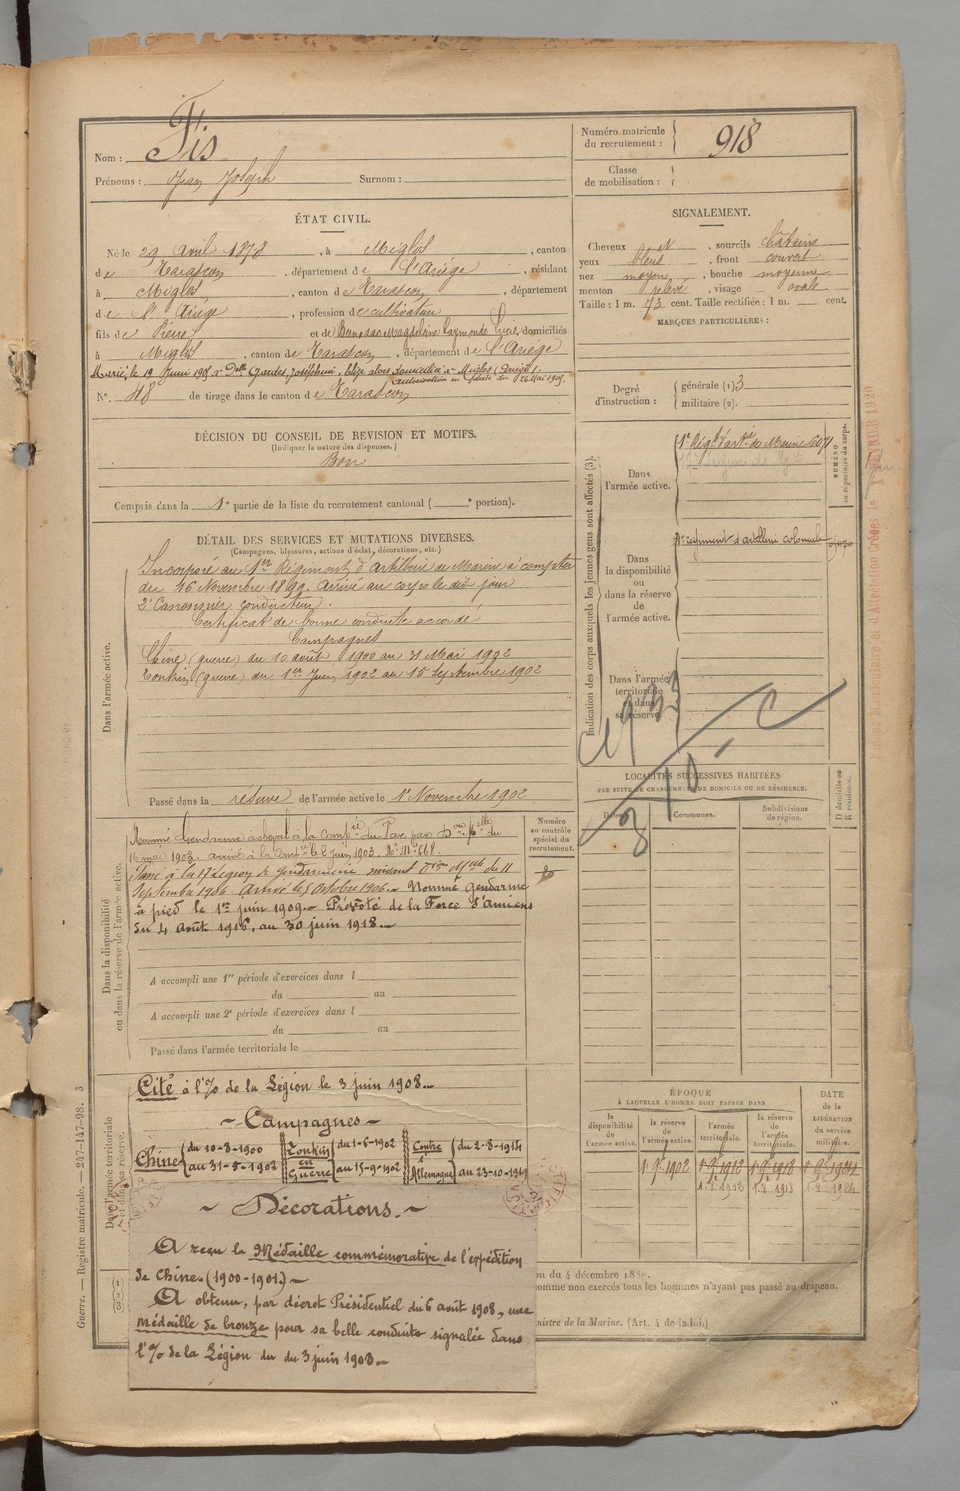 Nom : Fis
Prénoms : Jean Joseph Surnom :
Numéro matricule du recrutement : 918
Classe de mobilisation :
ÉTAT CIVIL.
Né le 29 Avril 1878, à Miglos, canton
de Tarascon, département de l'Ariége, résidant
à Miglos, canton de Tarascon, département
de l'Ariége, profession de cultivateur
fils de Pierre et de Magdeleine Raymonde domiciliés
à Miglos, canton de Tarascon, département de l'Ariége
Marié, le 19 Juin à Delle Gardes, Joséphine, Elize alors domiciliée à Miglos (Ariège).
autorisation en date du 26 Mai
N° 48 de tirage dans le canton de Tarascon
SIGNALEMENT.
Cheveux , sourcils châtains
yeux bleus, front couvert
nez moyen, bouche moyenne
menton relevé, visage ovale
Taille : 1 m. 73 cent. Taille rectifiée : 1 m. cent.
MARQUES PARTICULIÈRES :
Degré d'instruction : générale (1) 3
militaire (2).
DÉCISION DU CONSEIL DE REVISION ET MOTIFS.
(Indiquer la nature des dispenses.)
Bon
Compris dans la 1e partie de la liste du recrutement cantonal ( e portion).
DÉTAIL DES SERVICES ET MUTATIONS DIVERSES.
(Campagnes, blessures, actions d'éclat, décorations, etc.)
Dans l'armée active.
Incorporé au 1er Régiment d'Artillerie de Marine à compter
du 16 Novembre 1899. Arrivé au corps le dit jour
2e Canonnier conducteur.
Certificat de bonne conduite accordé
Campagnes
Chine (guerre) du 10 août 1900 au 31 Mai 1902
Tonkin (guerre) du 1er Juin 1902 au 15 Septembre 1902
Passé dans la réserve de l'armée active le 1er Novembre 1902
Indication des corps auxquels les jeunes gens sont affectés (3).
NUMÉRO au répertoire du corps.
Dans l'armée active.
1er Régt d'artie de Marine
Dans la disponibilité ou dans la réserve de l'armée active.
1er régiment d'artillerie coloniale
Dans l'armée territoriale et dans sa réserve.
LOCALITÉS SUCCESSIVES HABITÉES
PAR SUITE DE CHANGEMENT DE DOMICILE OU DE RÉSIDENCE.
Dates. Communes. Subdivisions de région. D domicile ou R résidence.
Dans la disponibilité ou dans la réserve de l'armée active.
Numéro au contrôle spécial du recrutement.
Nommé Gendarme à cheval à la Compie du Var par du
16 mai 1903. arrivé à la Compie le 2 Juin 1903. No Mle 668.
Passé à la 17e Légion de Gendarmerie suivant Don Mlle du 11
Septembre 1906. Arrivé le 5 Octobre 1906. Nommé gendarme
à pied le 1er juin 1909. Prévôté de la Force d'Amiens
du 4 Août 1916, au 30 juin 1918.
A accompli une 1re période d'exercices dans l
du au
A accompli une 2e période d'exercices dans l
du au
Passé dans l'armée territoriale le
Dans l'armée territoriale et dans sa réserve.
Cité à l'% de la Légion le 3 juin 1908.
~ Campagnes ~
Chine du 10-8-1900 au 31-5-1902
Tonkin en Guerre du 1-6-1902 au 15-9-1902
Contre l'Allemagne du 2-8-1914 au 23-10-1919
~ Décorations. ~
A reçu la Médaille commémorative de l'expédition
de Chine. (1900-1901.)
A obtenu, par décret Présidentiel du 6 août 1908, une
médaille de bronze pour sa belle conduite signalée dans
l'% de la Légion du du 3 juin 1908.
ÉPOQUE
À LAQUELLE L'HOMME DOIT PASSER DANS
la disponibilité de l'armée active. la réserve de l'armée active. l'armée territoriale. la réserve de l'armée territoriale.
DATE de la LIBÉRATION du service militaire.
1er 9bre 1902 1er 9bre 1912 1er 9bre 1918 1er 9bre 1924
1-8-1912 1-8-1918 1-8-1924
on du 4 décembre 1886.
comme non exercés tous les hommes n'ayant pas passé au drapeau.
ministre de la Marine. (Art. 4 de la loi.)
Guerre. — Registre matricule. — 247-147-98. 3